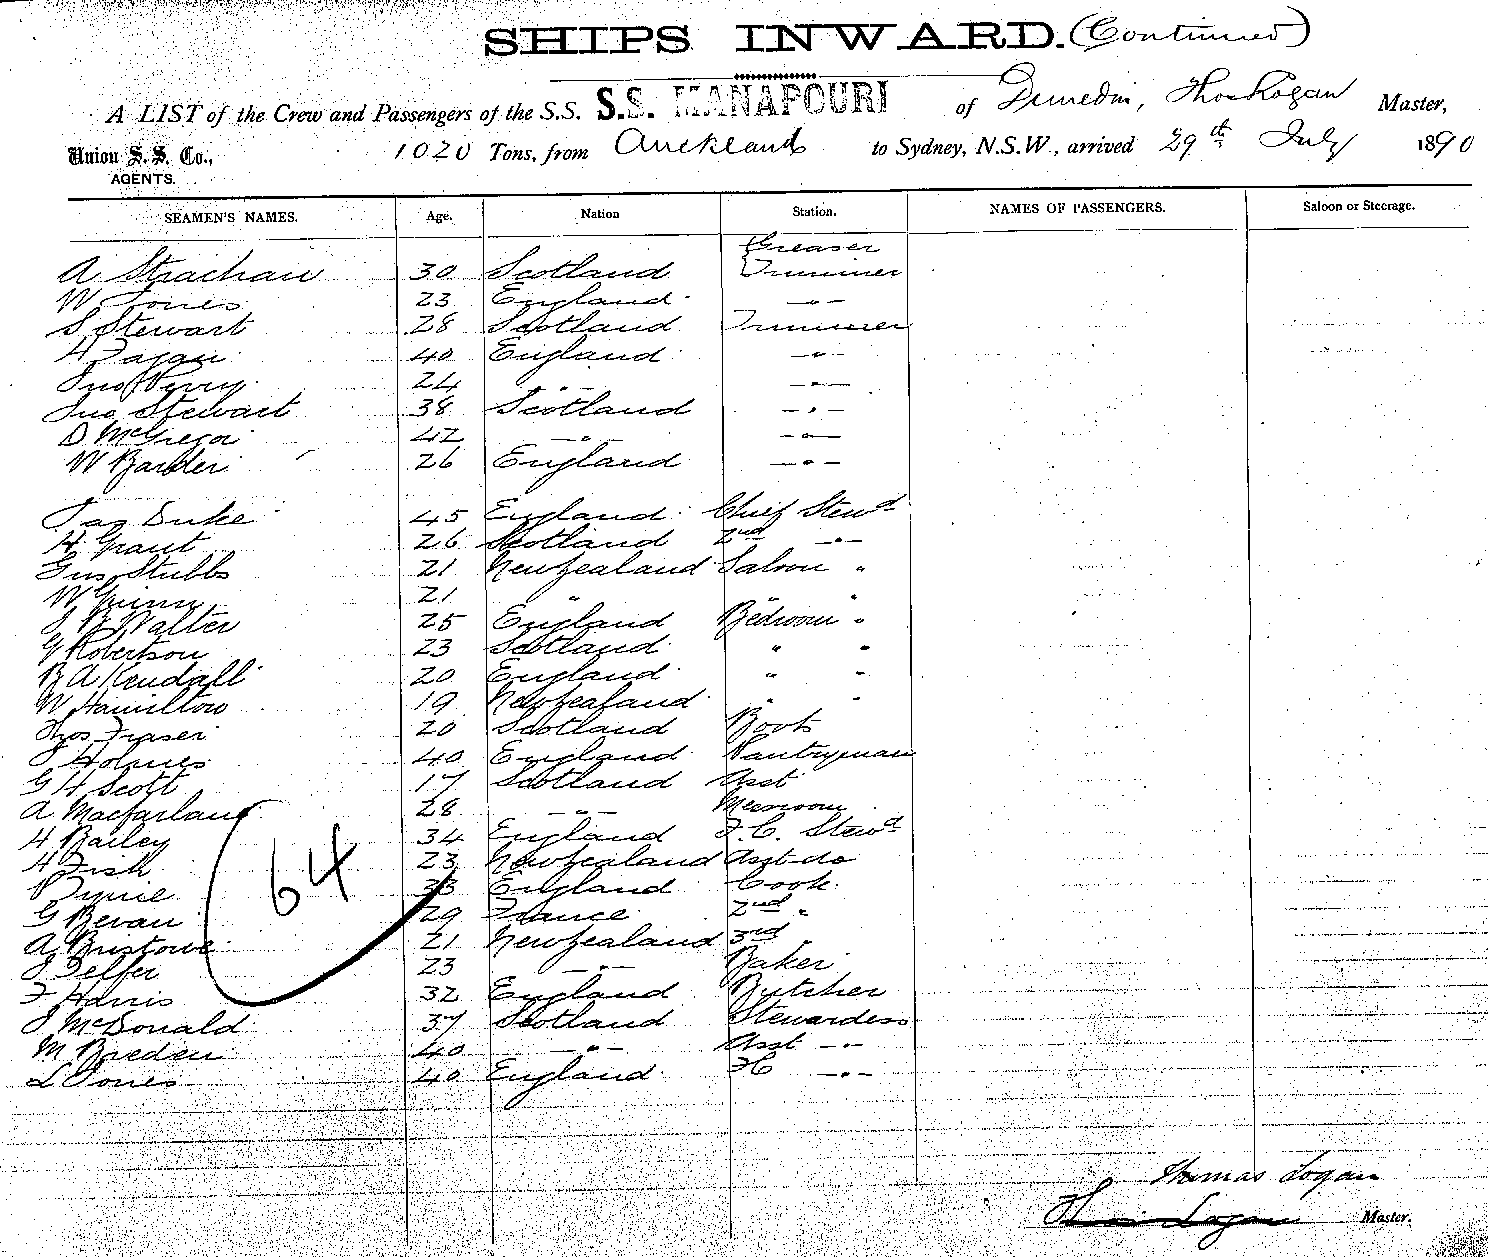 SHIPS INWARD. (Continued)
A LIST of the Crew and Passengers of the S.S. S.S. MANAPOURI of Dunedin, Thos Logan Master,
Union S. S. Co., AGENTS. 1020 Tons, from Auckland to Sydney, N.S.W., arrived 29th July 1890
SEAMEN'S NAMES. Age. Nation Station. NAMES OF PASSENGERS. Saloon or Steerage.
Greaser
A Strachan 30 Scotland Trimmer
W Jones 23 England -"-
S Stewart 28 Scotland Trimmer
H Fagan 40 England -"-
Jno Perry 24 -"- -"-
Jno Stewart 38 Scotland -"-
D McGregor 42 -"- -"-
W Barder 26 England -"-
Jas Duke 45 England Chief Stewd
H Grant 26 Scotland 2nd -"-
Gus Stubbs 21 New Zealand Saloon "
W Quinn 21 " "
J B Walter 25 England Bedroom "
G Robertson 23 Scotland " "
B A Kendall 20 England " "
W Hamilton 19 New Zealand " "
Thos Fraser 20 Scotland Boots
J Holmes 40 England Pantryman
G H Scott 17 Scotland Asst
A Macfarlane 28 -"- Messroom
H Bailey 34 England F.C. Stewd
H Fish 23 New Zealand Asst do
P Pyrie 33 England Cook
G Bevan 29 France 2nd "
A Bristowe 21 New Zealand 3rd "
J Telfer 23 -"- Baker
F Harris 32 England Butcher
J McDonald 37 Scotland Stewardess
M Breden 40 -"- Asst -"-
L Jones 40 England FC -"-
64
Thomas Logan
Thos Logan Master.